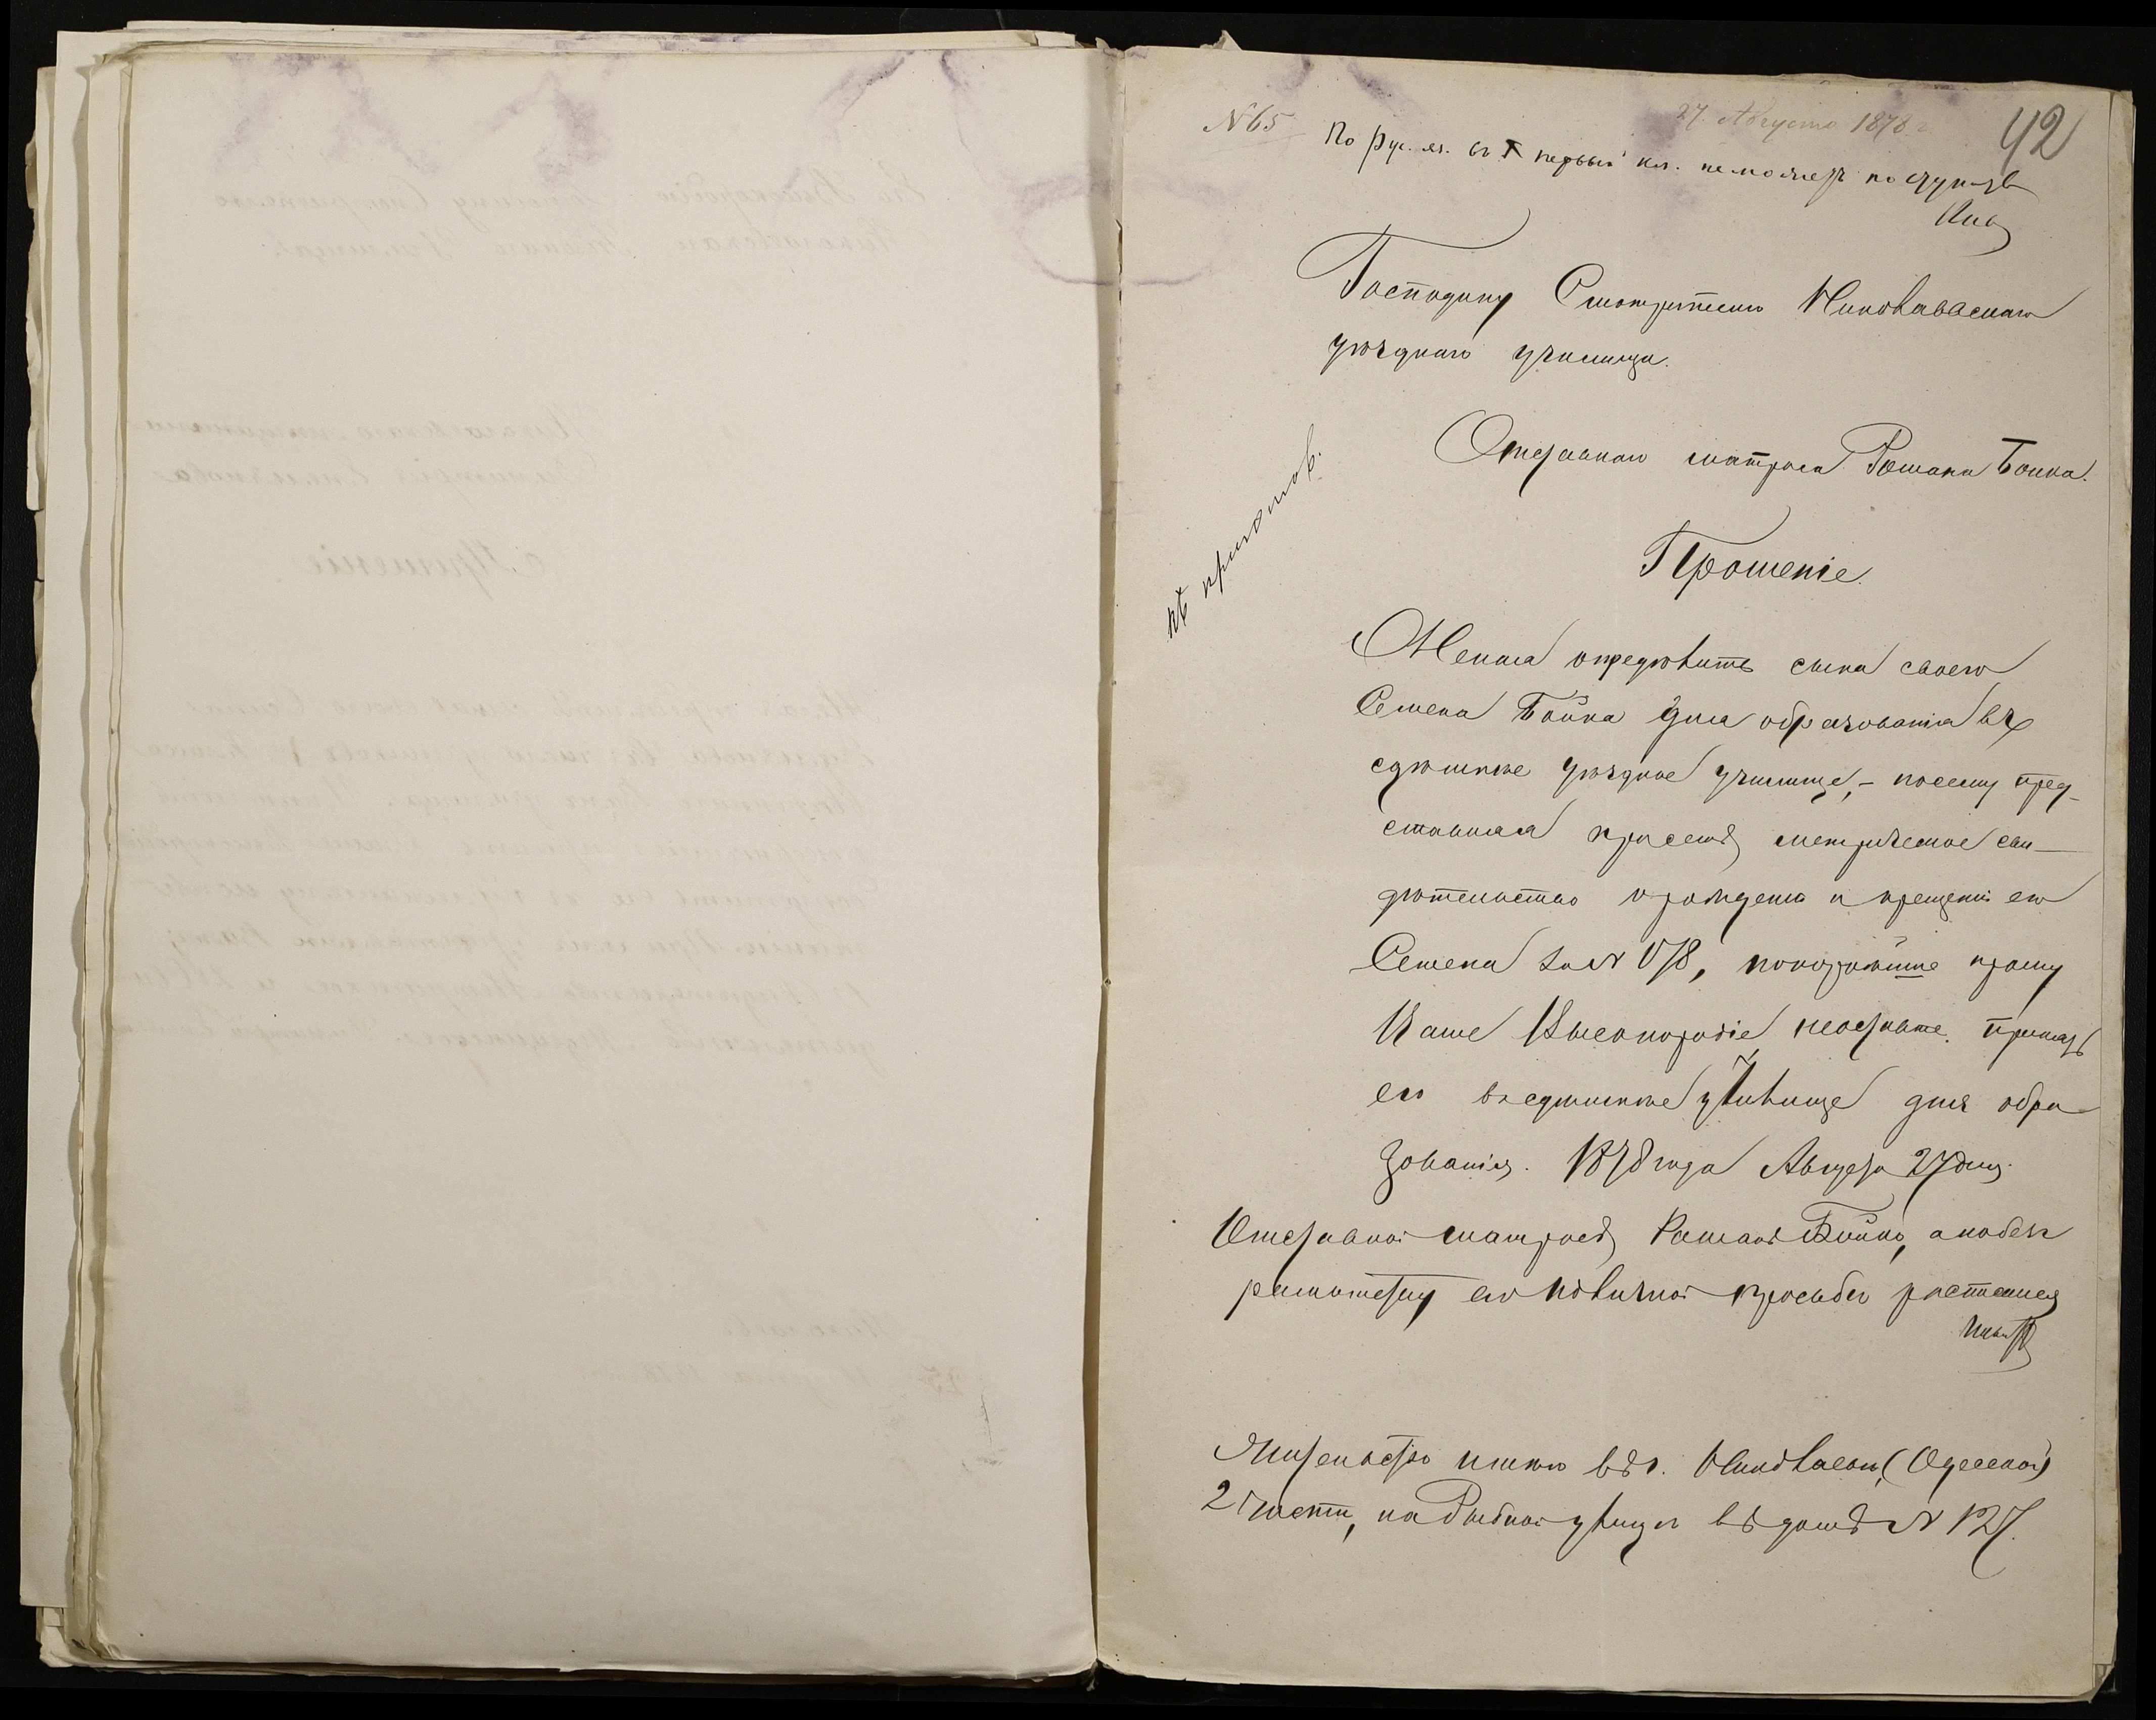 № 65
27. Августа 1878 г.
42
По Рус. яз. въ I первый кл. не можетъ поступить
Господину Смотрителю Николаевскаго
уѣзднаго училища.
Отставнаго матроса Романа Бойка.
Прошеніе.
въ приготов.
Желая опредѣлить сына своего
Семена Бойка для образованія въ
здѣшнее уѣздное училище, – посему пред-
ставляя при семъ метрическое сви-
дѣтельство о рожденіи и крещеніи его
Семена за №, покорнѣйше прошу
Ваше Высокородіе неоставте принять
его въ здѣшнее училище для обра-
зованія. 1878 года Августа 27 дня.
Отставной матросъ Романъ Бойко, а по безъ
грамотству его и личной просьбы росписался
Жительство имѣю въ г. Николаевѣ, (Одесской)
2 части, на Рыбной улицѣ въ домѣ № 127.